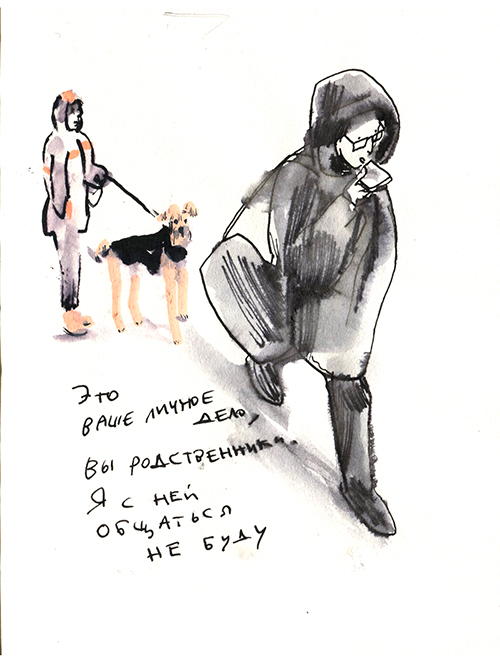 Это
ваше личное
дело,
вы родственники.
Я с ней
общаться
не буду